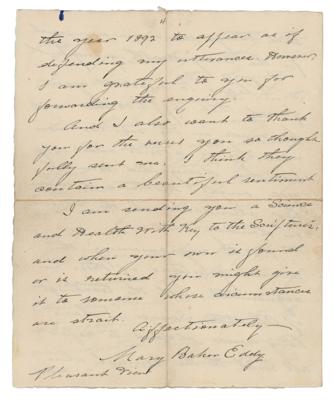 4
the year 1892 to appear as if
defending my utterances. However,
I am grateful to you for
forwarding the enquiry.
And I also want to thank
you for the verses you so thought
fully sent me. I think they
contain a beautiful sentiment
I am sending you a Science
and Health With Key to the Scriptures,
and when your own is found
or is returned you might give
it to someone whose circumstances
are strait.
Affectionately—
Mary Baker Eddy
Pleasant View